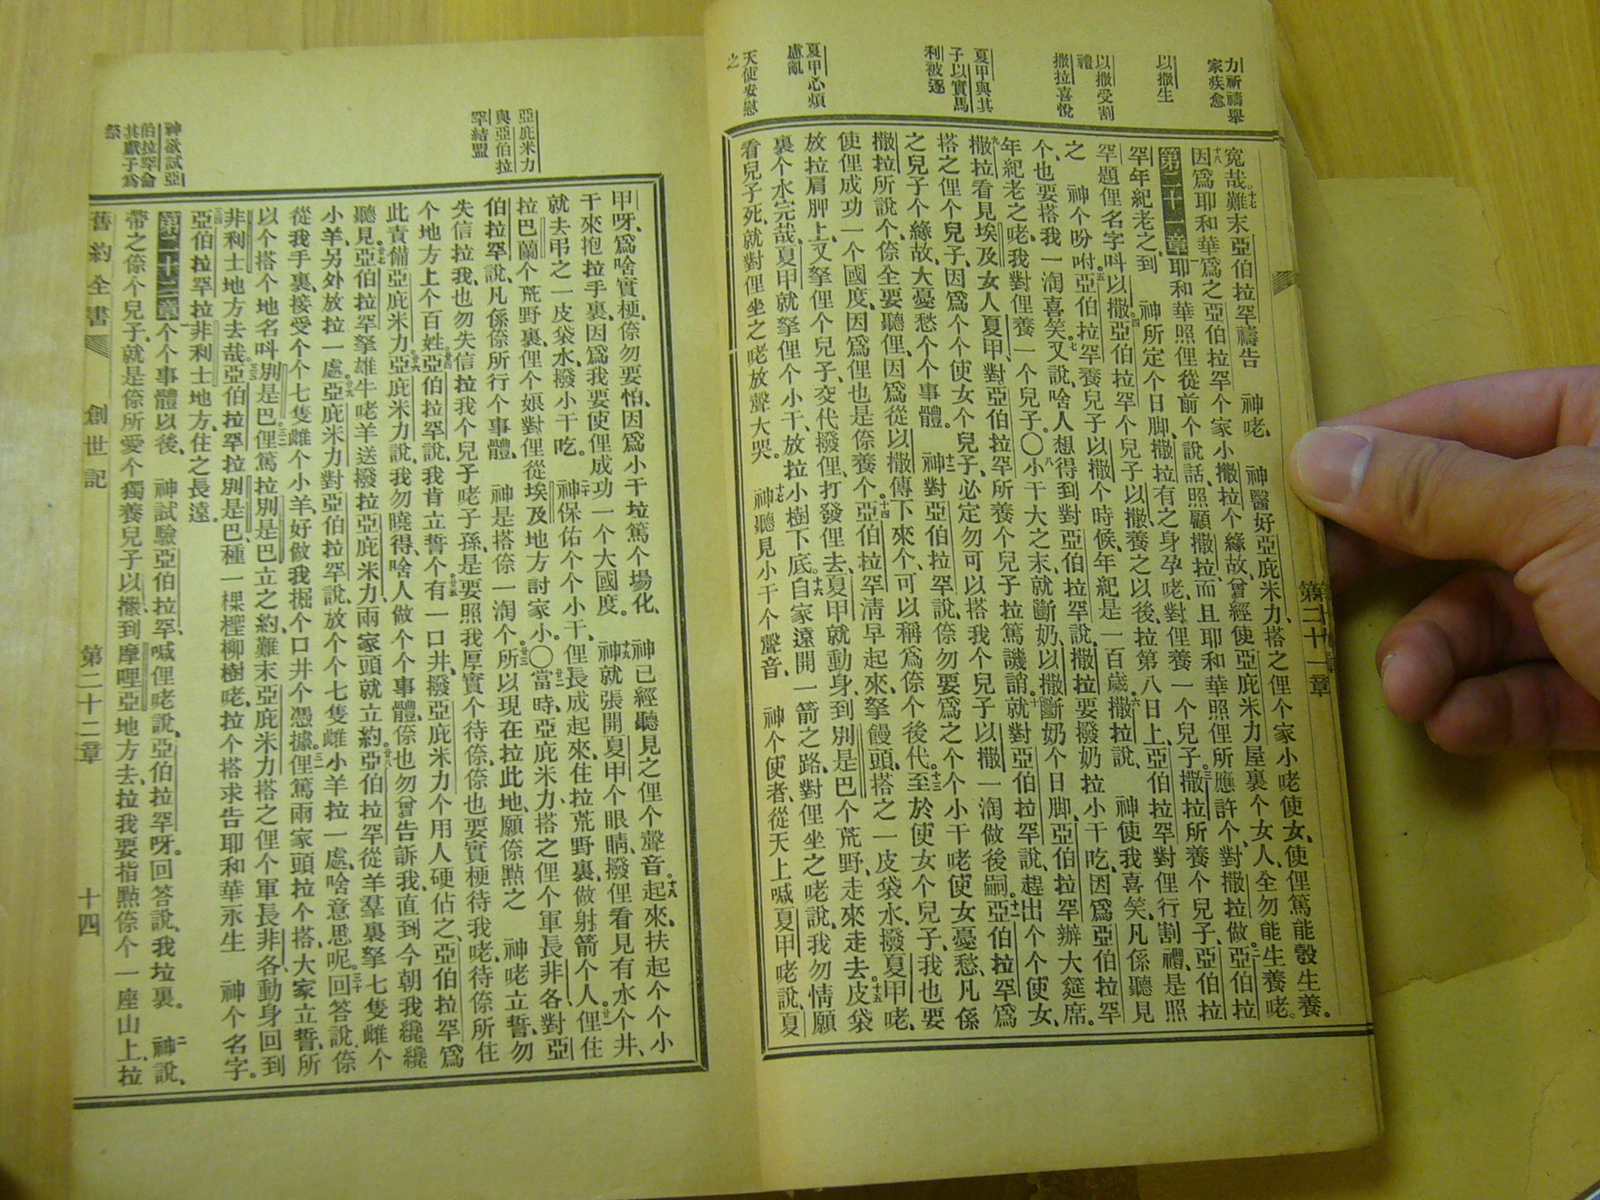 力祈禱舉
家疾愈
以撒生
以撒受割
禮
撒拉喜悅
夏甲與其
子以實馬
利被逐
夏甲心煩
慮亂
天使安慰
之
寃哉難末亞伯拉罕禱告 神咾 神醫好亞庇米力搭之俚个家小咾使女使俚篤能彀生養
因爲耶和華爲之亞伯拉罕个家小撒拉个緣故曾經使亞庇米力屋裏个女人全勿能生養咾
第二十一章 耶和華照俚從前个說話照顧撒拉而且耶和華照俚所應許个對撒拉做亞伯拉
罕年紀老之到 神所定个日脚撒拉有之身孕咾對俚養一个兒子撒拉所養个兒子亞伯拉
罕題俚名字呌以撒亞伯拉罕个兒子以撒養之以後拉第八日上亞伯拉罕對俚行割禮是照
之 神个吩咐亞伯拉罕養兒子以撒个時候年紀是一百歲撒拉說 神使我喜笑凡係聽見
个也要搭我一淘喜笑又說啥人想得到對亞伯拉罕說撒拉要撥奶拉小干吃因爲亞伯拉罕
年紀老之咾我對俚養一个兒子〇小干大之末就斷奶以撒斷奶个日脚亞伯拉罕辦大筵席
撒拉看見埃及女人夏甲對亞伯拉罕所養个兒子拉篤譏誚就對亞伯拉罕說趕出个个使女
搭之俚个兒子因爲个个使女个兒子必定勿可以搭我个兒子以撒一淘做後嗣亞伯拉罕爲
之兒子个緣故大憂愁个个事體 神對亞伯拉罕說儂勿要爲之个个小干咾使女憂愁凡係
撒拉所說个儂全要聽俚因爲從以撒傳下來个可以稱爲儂个後代至於使女个兒子我也要
使俚成功一个國度因爲俚也是儂養个亞伯拉罕清早起來拏饅頭搭之一皮袋水撥夏甲咾
放拉肩胛上又拏俚个兒子交代撥俚打發俚去夏甲就動身到別是巴个荒野走來走去皮袋
裏个水完哉夏甲就拏俚个小干放拉小樹下底自家遠開一箭之路對俚坐之咾說我勿情願
看兒子死就對俚坐之咾放聲大哭 神聽見小干个聲音 神个使者從天上喊夏甲咾說夏
第二十一章
亞庇米力
與亞伯拉
罕結盟
神欲試亞
伯拉罕命
其獻子爲
祭
甲呀爲啥實梗儂勿要怕因爲小干垃篤个場化 神已經聽見之俚个聲音起來扶起个个小
干來抱拉手裏因爲我要使俚成功一个大國度 神就張開夏甲个眼睛撥俚看見有水个井
就去弔之一皮袋水撥小干吃 神保佑个个小干俚長成起來住拉荒野裏做射箭个人俚住
拉巴蘭个荒野裏俚个娘對俚從埃及地方討家小〇當時亞庇米力搭之俚个軍長非各對亞
伯拉罕說凡係儂所行个事體 神是搭儂一淘个所以現在拉此地願儂點之 神咾立誓勿
失信拉我也勿失信拉我个兒子咾子孫是要照我厚實个待儂儂也要實梗待我咾待儂所住
个地方上个百姓亞伯拉罕說我肯立誓个有一口井撥亞庇米力个用人硬佔之亞伯拉罕爲
此責備亞庇米力亞庇米力說我勿曉得啥人做个个事體儂也勿曾告訴我直到今朝我纔纔
聽見亞伯拉罕拏雄牛咾羊送撥拉亞庇米力兩家頭就立約亞伯拉罕從羊羣裏拏七隻雌个
小羊另外放拉一處亞庇米力對亞伯拉罕說放个个七隻雌小羊拉一處啥意思呢回答說儂
從我手裏接受个个七隻雌个小羊好做我掘个口井个憑據俚篤兩家頭拉个搭大家立誓所
以个搭个地名呌別是巴俚篤拉別是巴立之約難末亞庇米力搭之俚个軍長非各動身回到
非利士地方去哉亞伯拉罕拉別是巴種一棵檉柳樹咾拉个搭求告耶和華永生 神个名字
亞伯拉罕拉非利士地方住之長遠
第二十二章 个个事體以後 神試驗亞伯拉罕喊俚咾說亞伯拉罕呀回答說我垃裏 神說
帶之儂个兒子就是儂所愛个獨養兒子以撒到摩哩亞地方去拉我要指點儂个一座山上拉
舊約全書 創世記 第二十二章 十四